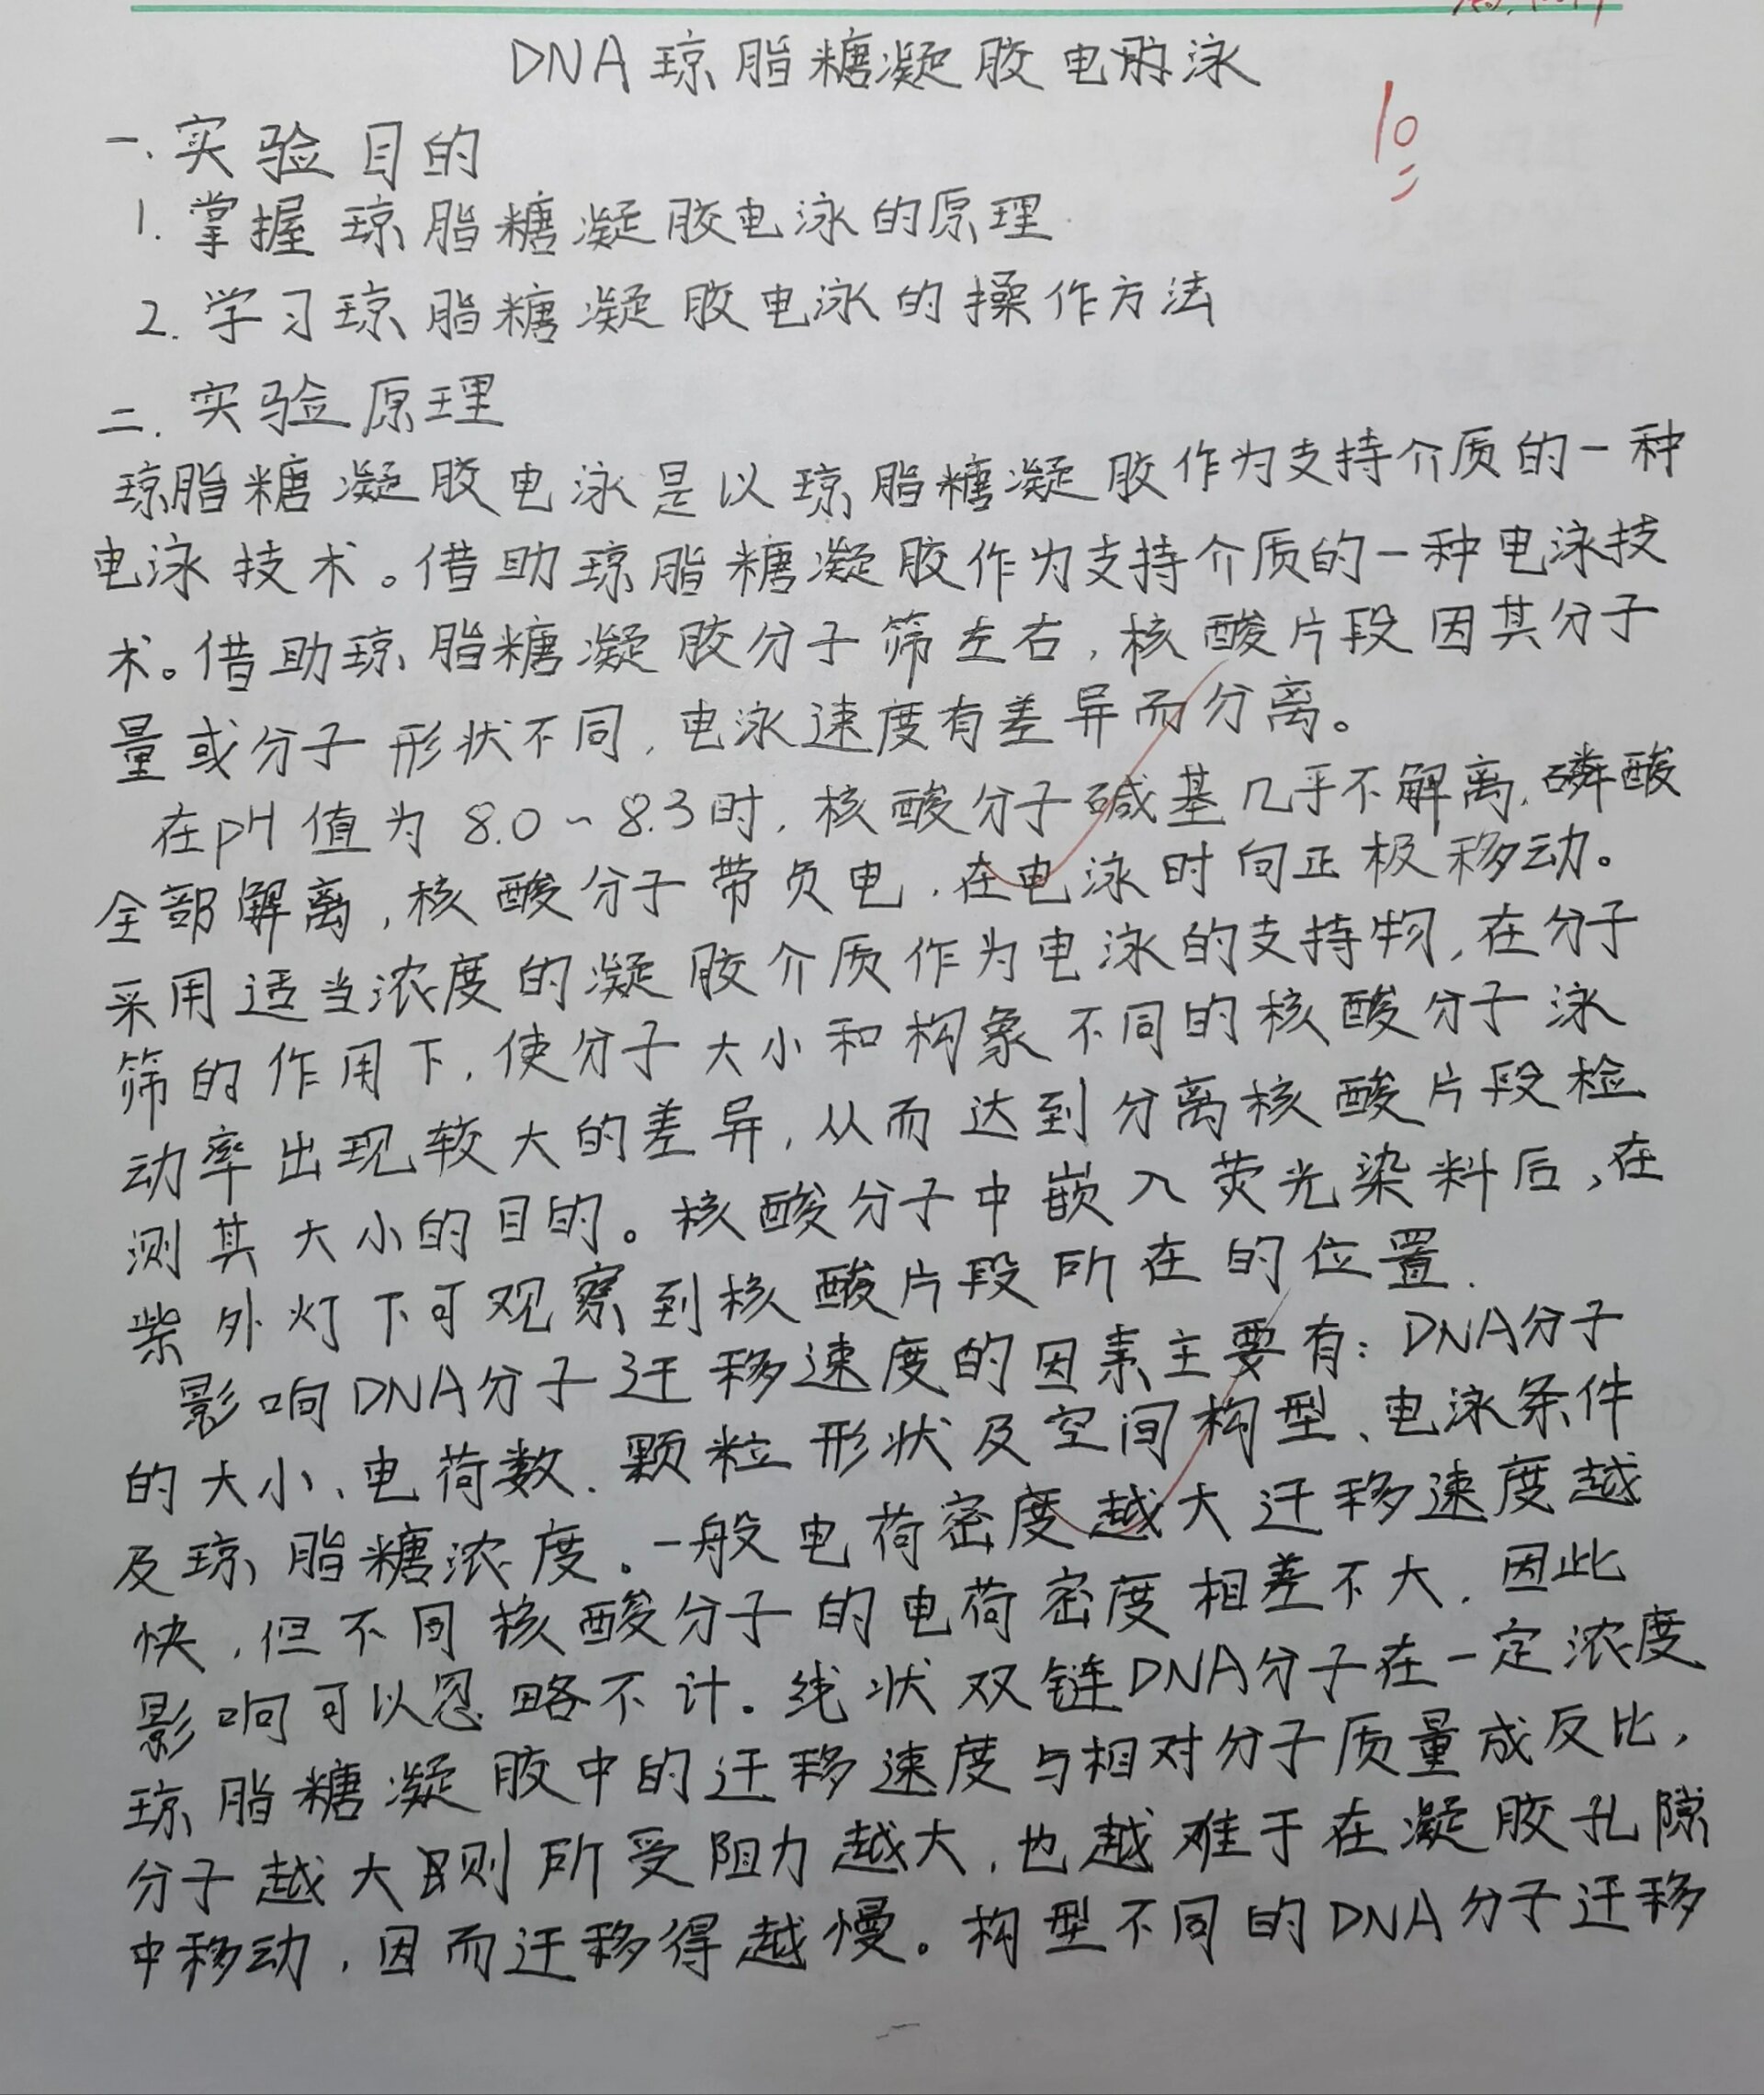 DNA琼脂糖凝胶电泳
10
一.实验目的
1.掌握琼脂糖凝胶电泳的原理
2.学习琼脂糖凝胶电泳的操作方法
二.实验原理
琼脂糖凝胶电泳是以琼脂糖凝胶作为支持介质的一种
电泳技术。借助琼脂糖凝胶作为支持介质的一种电泳技
术。借助琼脂糖凝胶分子筛左右,核酸片段因其分子
量或分子形状不同,电泳速度有差异而分离。
在pH值为8.0~8.3时,核酸分子碱基几乎不解离,磷酸
全部解离,核酸分子带负电,在电泳时向正极移动。
采用适当浓度的凝胶介质作为电泳的支持物,在分子
筛的作用下,使分子大小和构象不同的核酸分子泳
动率出现较大的差异,从而达到分离核酸片段检
测其大小的目的。核酸分子中嵌入荧光染料后,在
紫外灯下可观察到核酸片段所在的位置.
影响DNA分子迁移速度的因素主要有:DNA分子
的大小、电荷数.颗粒形状及空间构型、电泳条件
及琼脂糖浓度。一般电荷密度越大迁移速度越
快,但不同核酸分子的电荷密度相差不大,因此
影响可以忽略不计。线状双链DNA分子在一定浓度
琼脂糖凝胶中的迁移速度与相对分子质量成反比,
分子越大则所受阻力越大,也越难于在凝胶孔隙
中移动,因而迁移得越慢。构型不同的DNA分子迁移